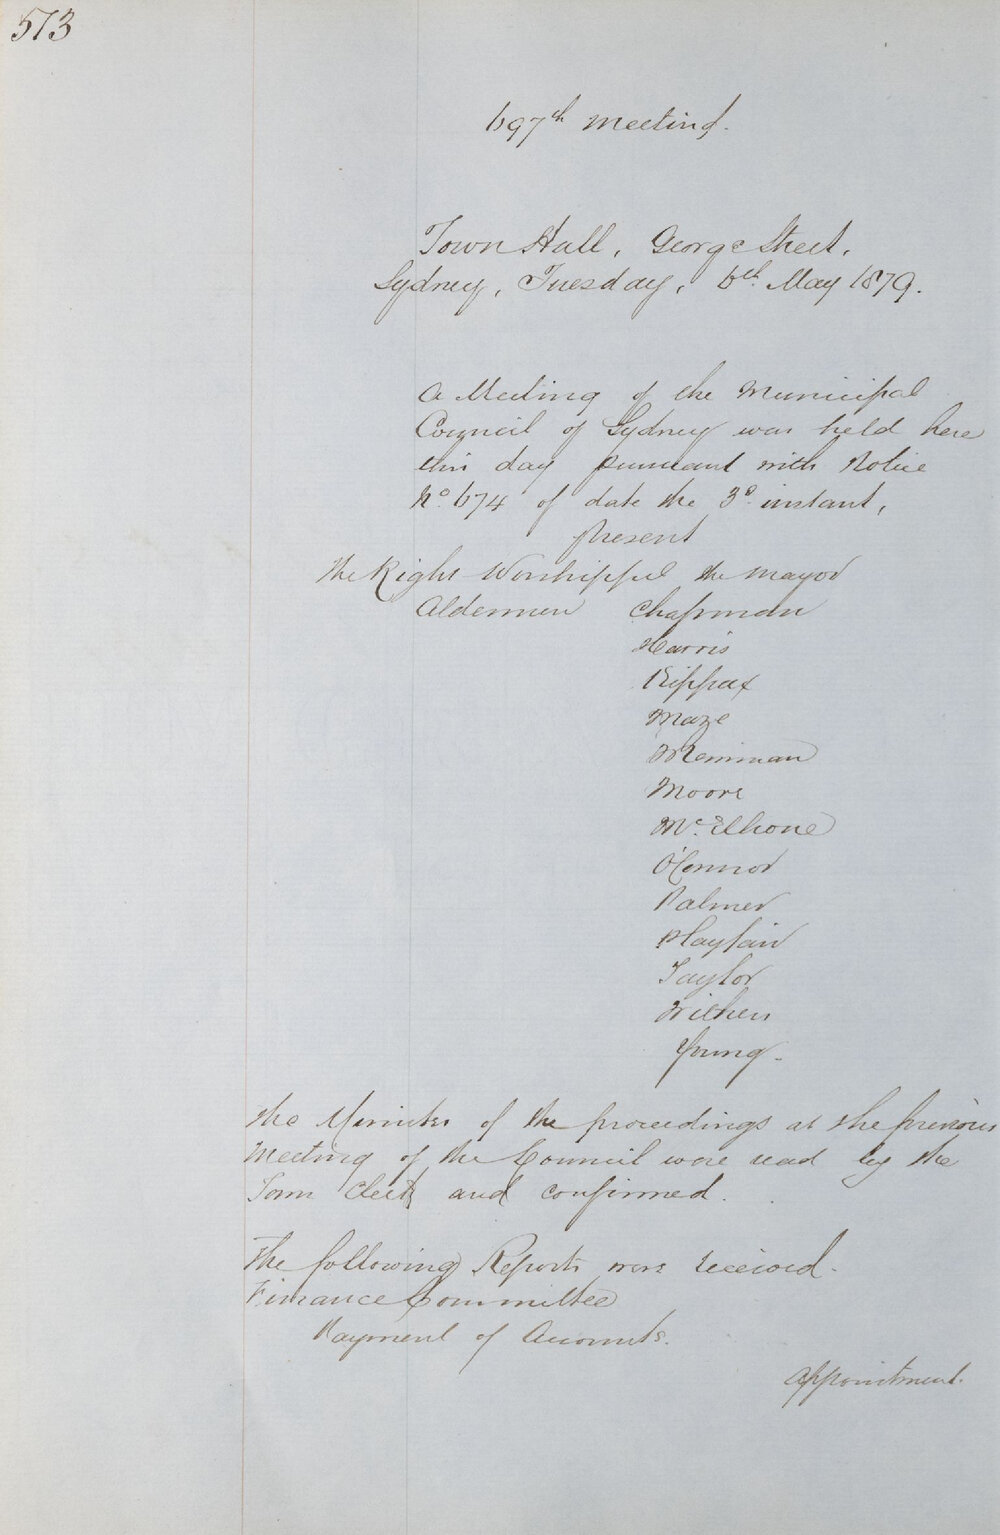 573
697th Meeting.
Town Hall, George Street,
Sydney, Tuesday, 6th. May 1879.
A Meeting of the Municipal
Council of Sydney was held here
this day pursuant with Notice
No. 674 of date the 3d. instant,
present
The Right Worshipful the Mayor
Aldermen Chapman
Harris
Kippax
Maze
Merriman
Moore
Mc.Elhone
O'Connor
Palmer
Playfair
Taylor
Withers
Young.
The Minutes of the proceedings at the previous
Meeting of the Council were read by the
Town Clerk and confirmed.
The following Reports were received.
Finance Committee
Payment of Accounts.
Appointment.